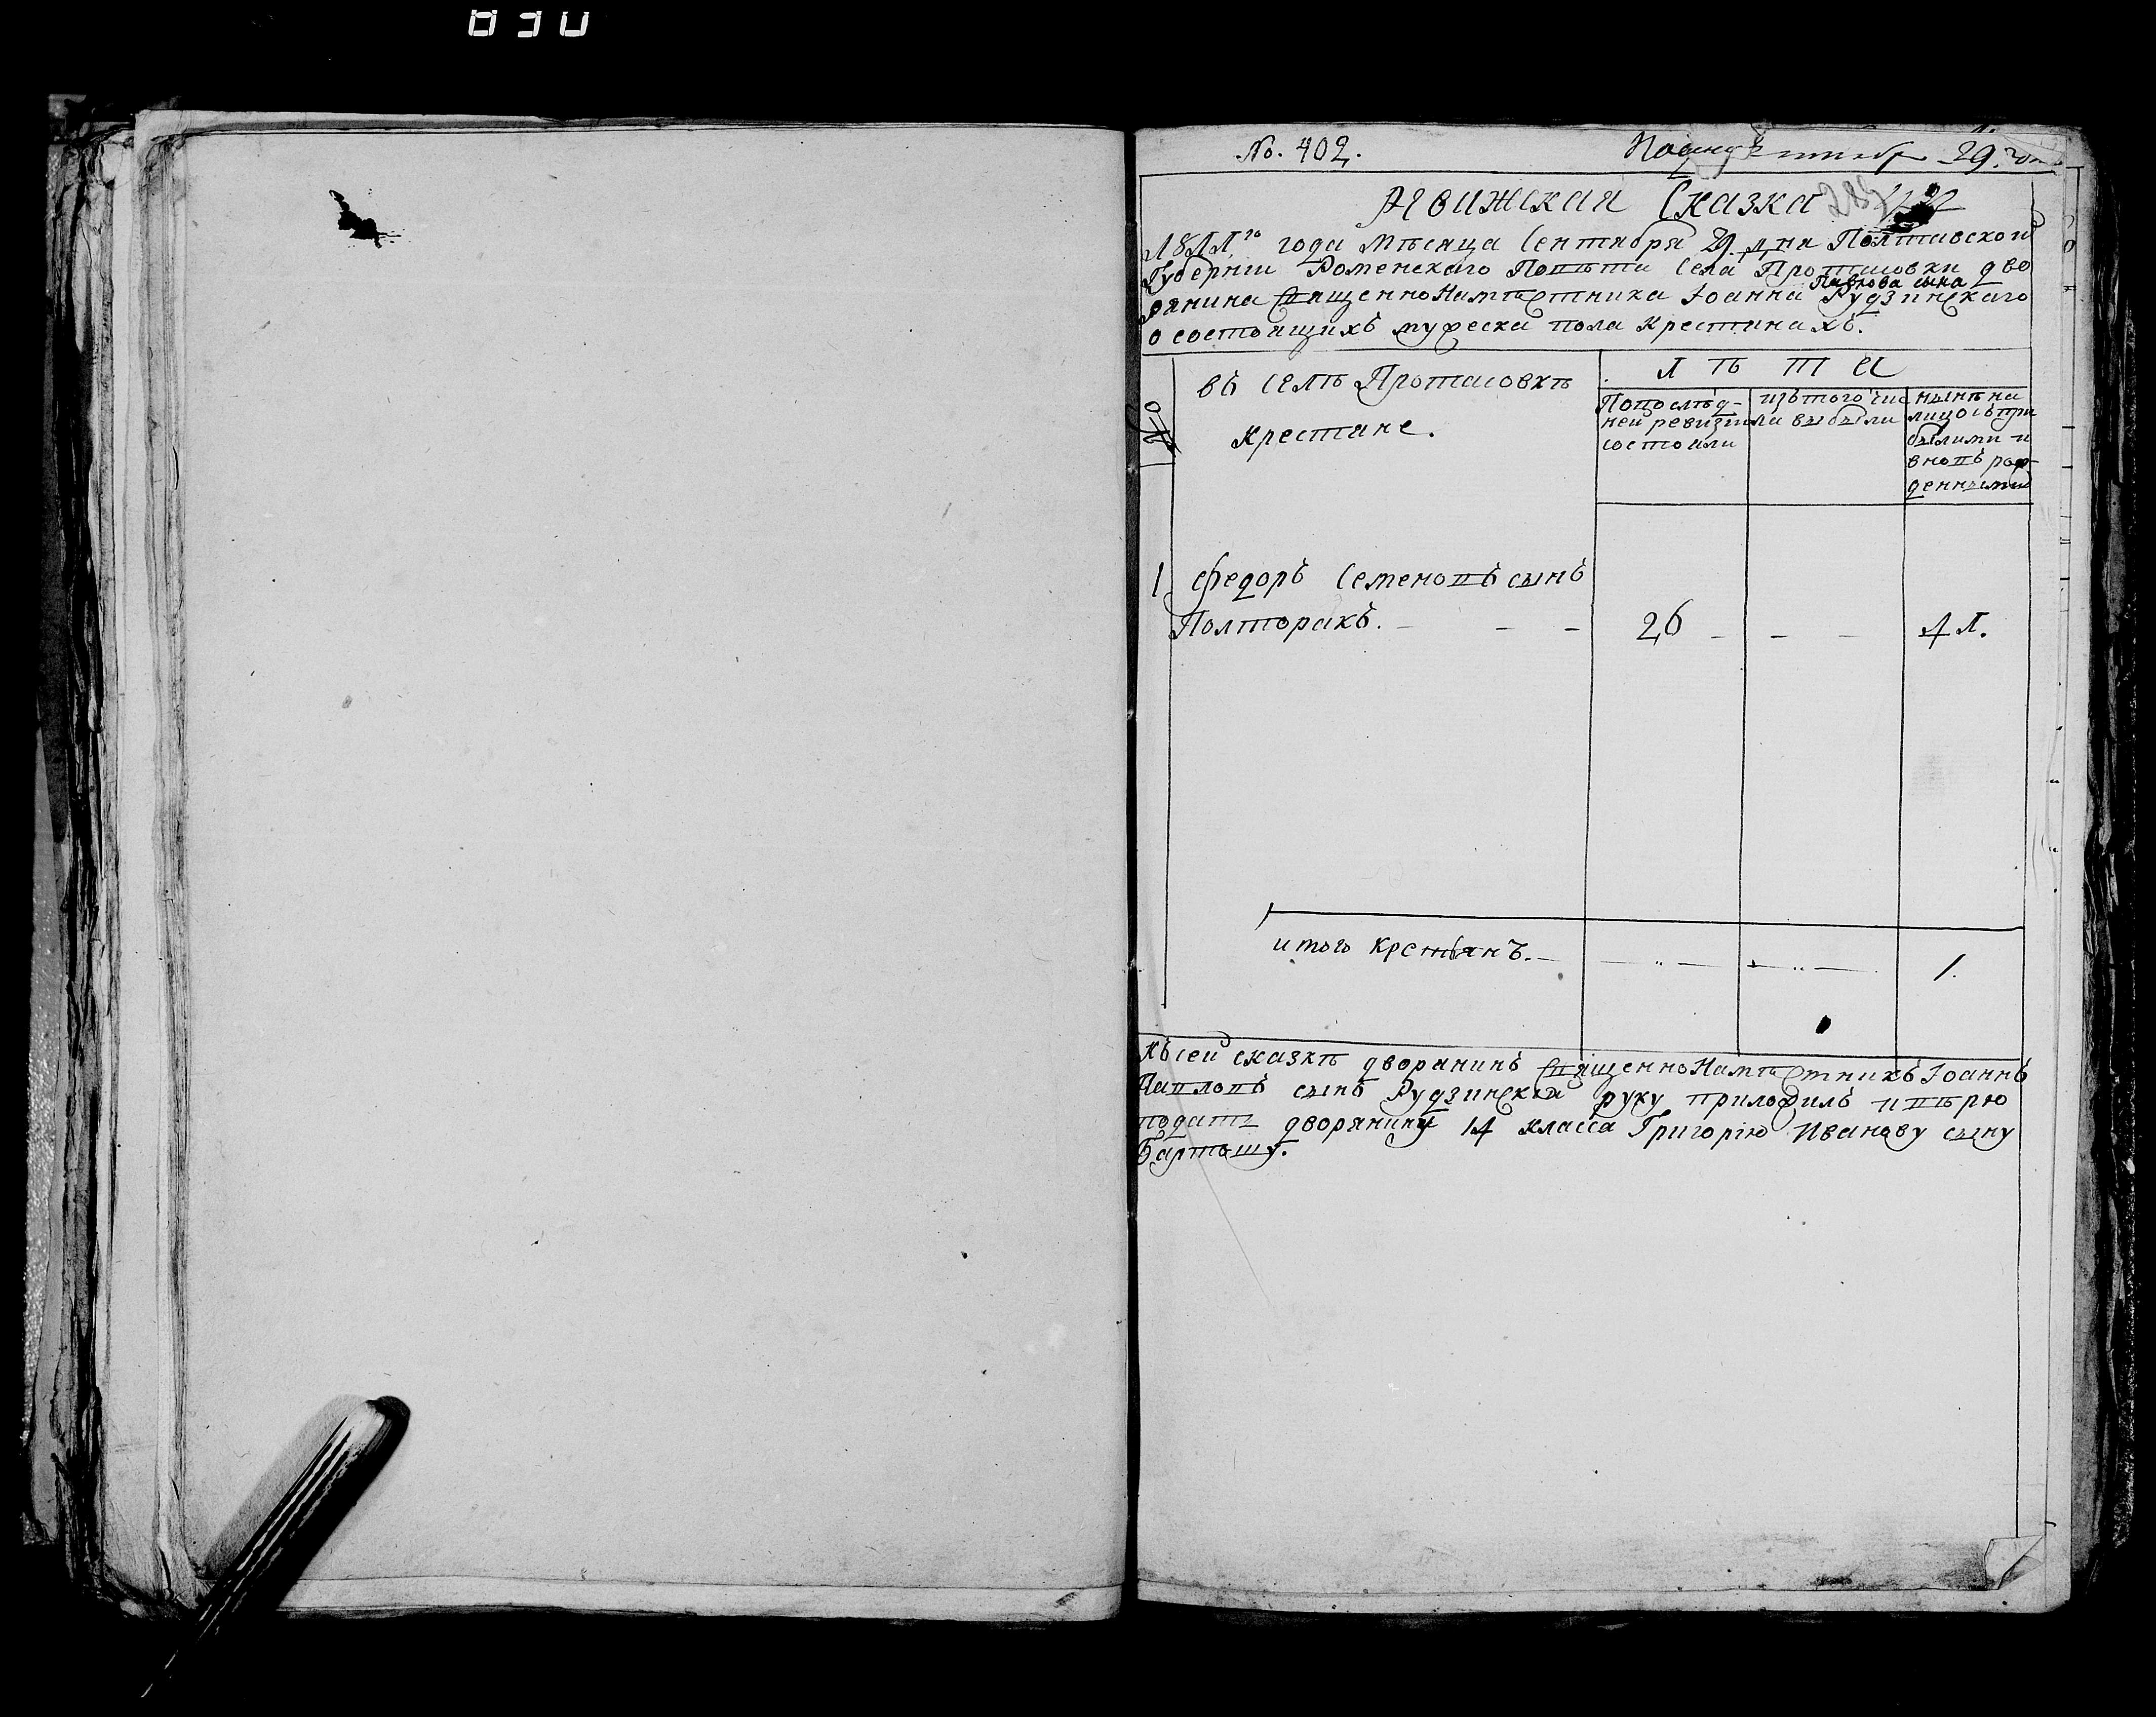 030
No. 402.
Подана Сентября 29. дня
Ревижская Сказка
1811го года Мѣсяца Сентября 29. дня Полтавской
Губернии Роменскаго Повѣта Села Протасовки дво
Павлова сына
рянина СвященноНамѣстника Іоанна Рудзинскаго
о состоящихъ мужеска пола крестянахъ.
№
въ Селѣ Протасовкѣ
крестяне.
лѣта
Попослѣд-
ней ревизии
состояли
изътого чис
ла выбыли
нынѣ на
лицо съпри
былыми и
вновь рож-
денными
1 Федоръ Семеновъ сынъ
Полторакъ. - - - 26 - - - 41.
итого крстьянъ. - - „ - - „ - 1.
Къ сей сказкѣ дворянинъ СвященноНамѣстникъ Іоаннъ
Павловъ сынъ Рудзинскій руку приложилъ и вѣрю
подать дворянину 14 класса Григорію Иванову сыну
Бартошу.